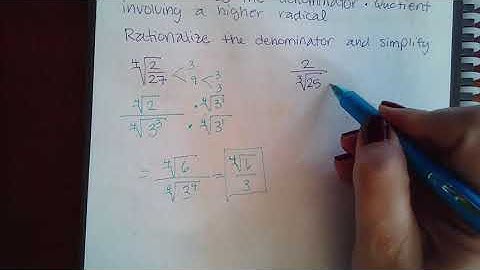 the denominator • Quotient
involving a higher radical
Rationalize the denominator and simplify
∜(2/27) < 3, 9 < 3, 3
2/∛25
∜2/∜3³ · ∜3¹/∜3¹
= ∜6/∜3⁴ = ∜6/3